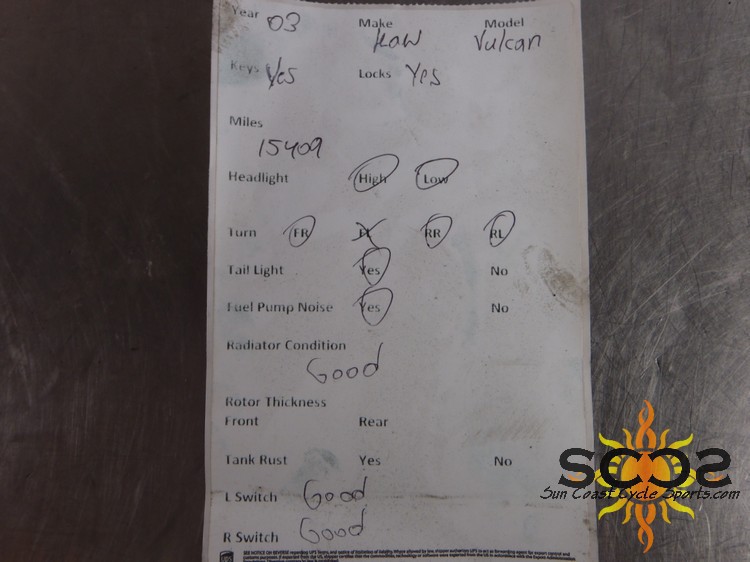 Year 03 Make Kaw Model Vulcan
Keys Yes Locks Yes
Miles
15409
Headlight High Low
Turn FR FL RR RL
Tail Light Yes No
Fuel Pump Noise Yes No
Radiator Condition
Good
Rotor Thickness
Front Rear
Tank Rust Yes No
L Switch Good
R Switch Good
SCCS
Sun Coast Cycle Sports.com